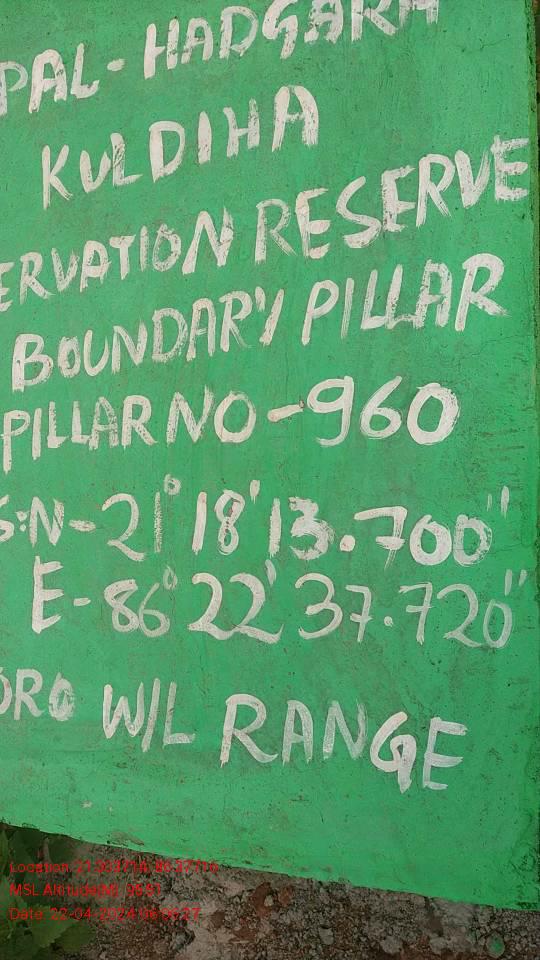 PAL-HADGARH
KULDIHA
ERVATION RESERVE
BOUNDARY PILLAR
PILLAR NO-960
S:N-21° 18' 13.700"
E-86° 22' 37.720"
ORO W/L RANGE
Location:
MSL Altitude
Date: 22-04-2024